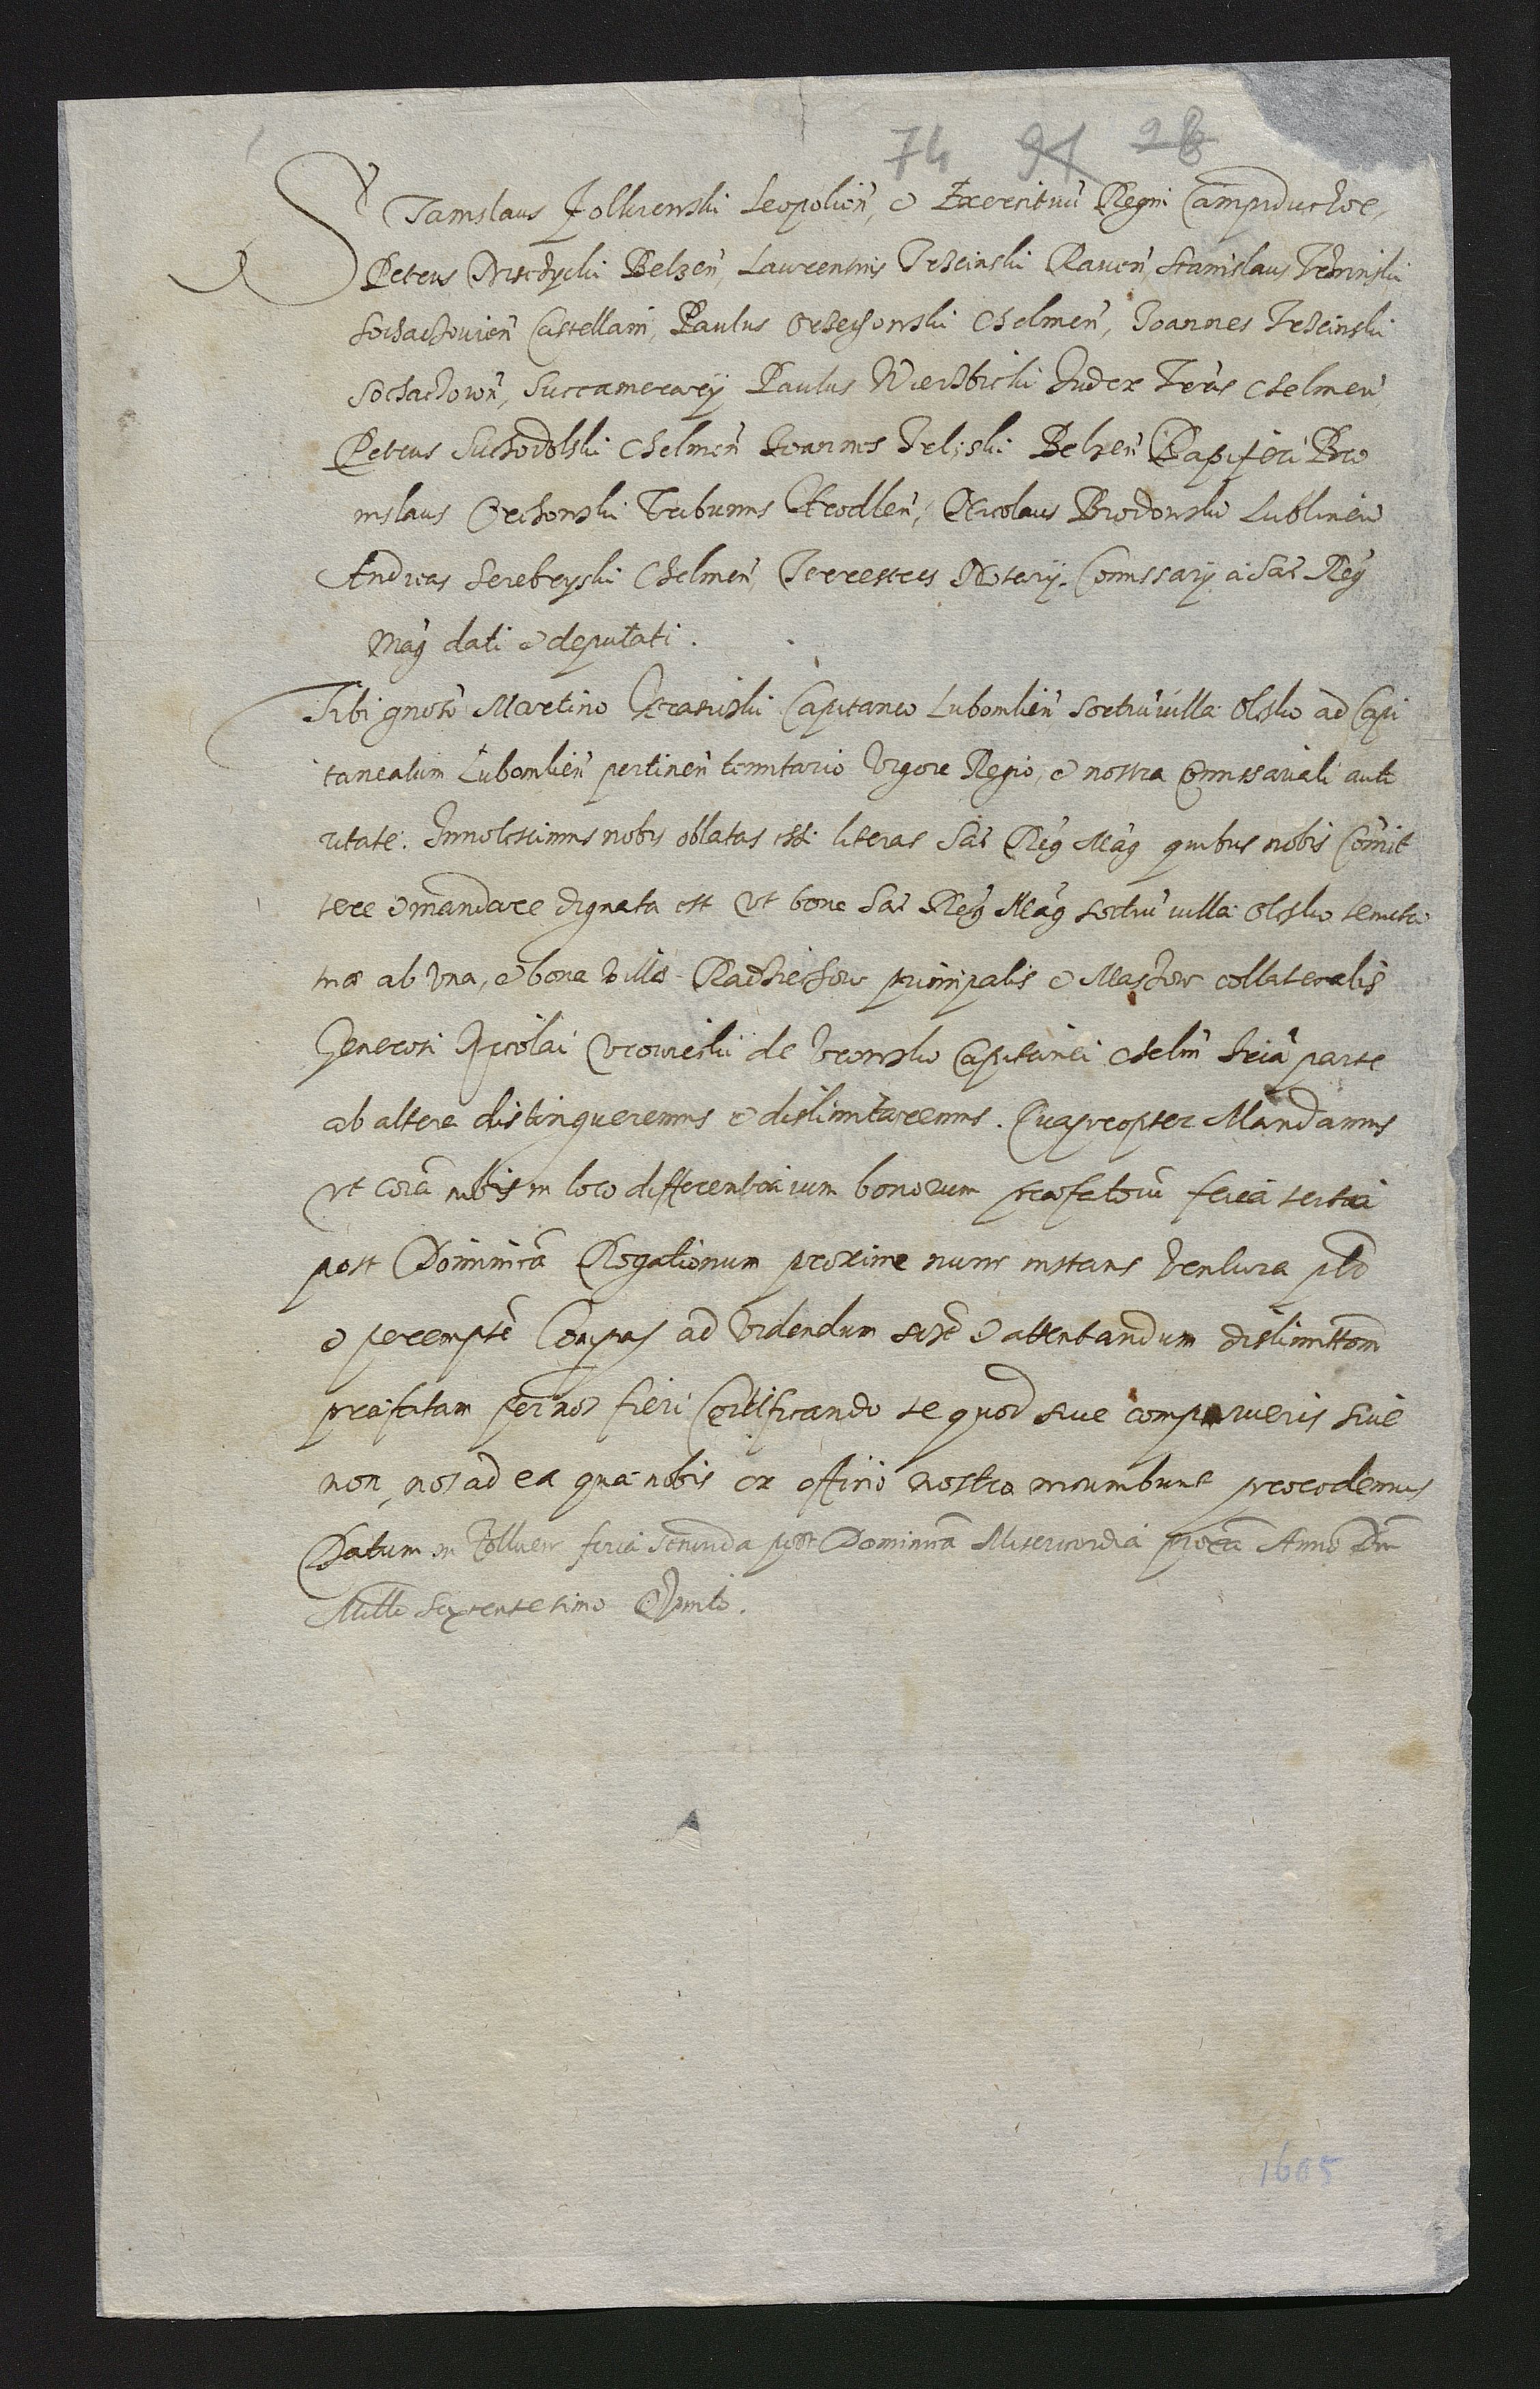 74 91 28
Stanislaus Zolkiewski Leopolien̄, et Exercituū Regni Campiductor,
Petrus Belzen̄, Laurentius Trzcinski Raven̄, Stanislaus
Sochachovien̄ Castellani, Paulus Orzechowski Chelmen̄, Joannes Trzcinski
Sochachown̄, Succamerarij Paulus Wierzbicki Judex Terrīs Chelmen̄,
Petrus Suchodolski Chelmen̄ Joannes Belzen̄ Dapiferi Bro
nislaus Orchowski Tribunus Hrodlen̄, Nicolaus Brodowski Lublinen̄
Andreas Serebryski Chelmen̄, Terrestres Notarij. Comissarij a Sac̄ Reḡ
Maḡ dati et deputati.
Tibi gnoso Martino Capitaneo Lubomlien̄ villa Olesko ad Capi
taneatum Lubomlien̄ pertinen̄ tenutario vigore Regio, et nostra Comissariali auto
ritate. Innotescimus nobis oblatas esse literas Sac̄ Reḡ Maḡ quibus nobis Comit
tere et mandare dignata est ut bona Sac̄ Reḡ Maḡ villa Olesko tenuta
ab una, et bona villa principalis et collateralis
Generosi Nicolai Urowieski de Capitanei Chelm̄ parte
ab altera distingueremus et dislimitaremus. Quapropter Mandamus
ut corā nobis in loco differentiarum bonorum praefatorū feria tertia
post Dominicā Rogationum proxime nunc instans ventura
et peremptē Compas ad videndum et attentandum dislimittōm
praefatam per nos fieri Certificando te quod sive comparueris sive
non, nos ad ea quae nobis ex officio nostro incumbunt procedemus
Datum in Zolkiew feria secunda post Dominicā Misericordia Anno Dn̄i
Millo Sexcentesimo Quinto.
1605